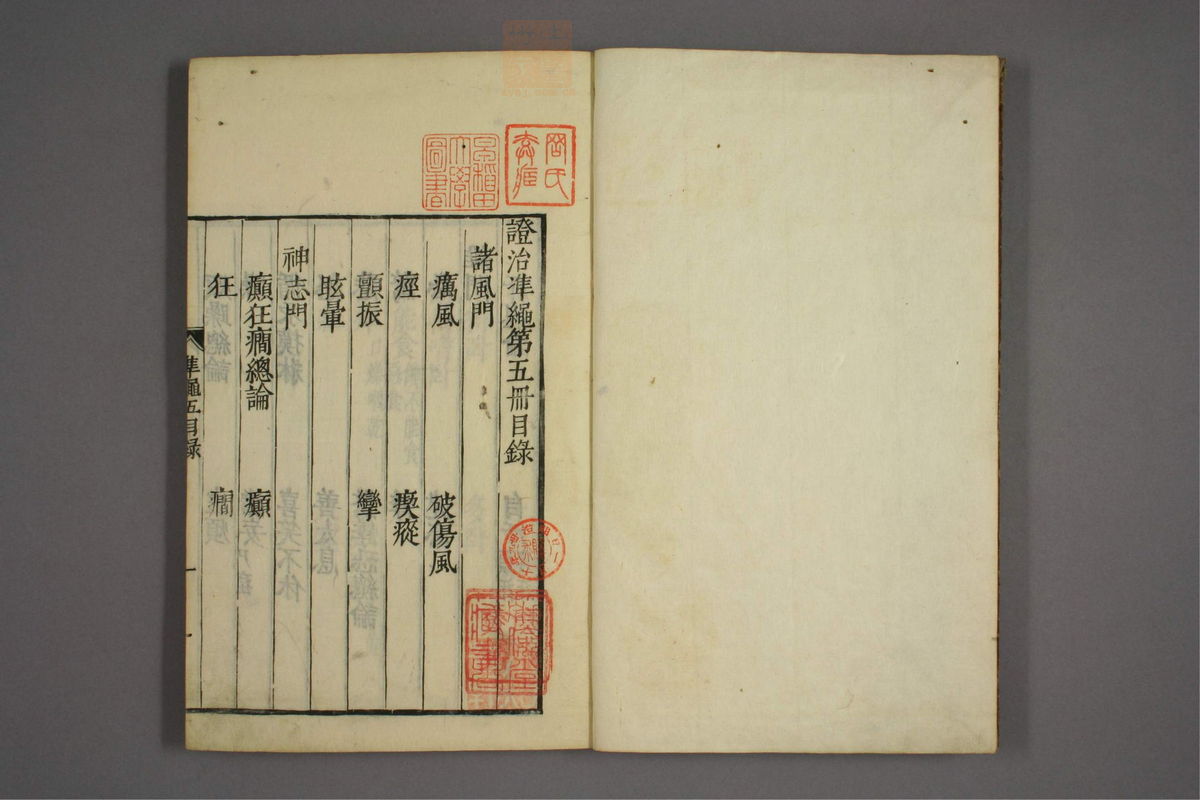 證治準繩第五冊目錄
諸風門
癘風 破傷風
痙 瘈瘲
顫振 攣
眩暈
神志門
癲狂癇總論 癲
狂 癇
準繩五目錄 一
早稻田大學圖書